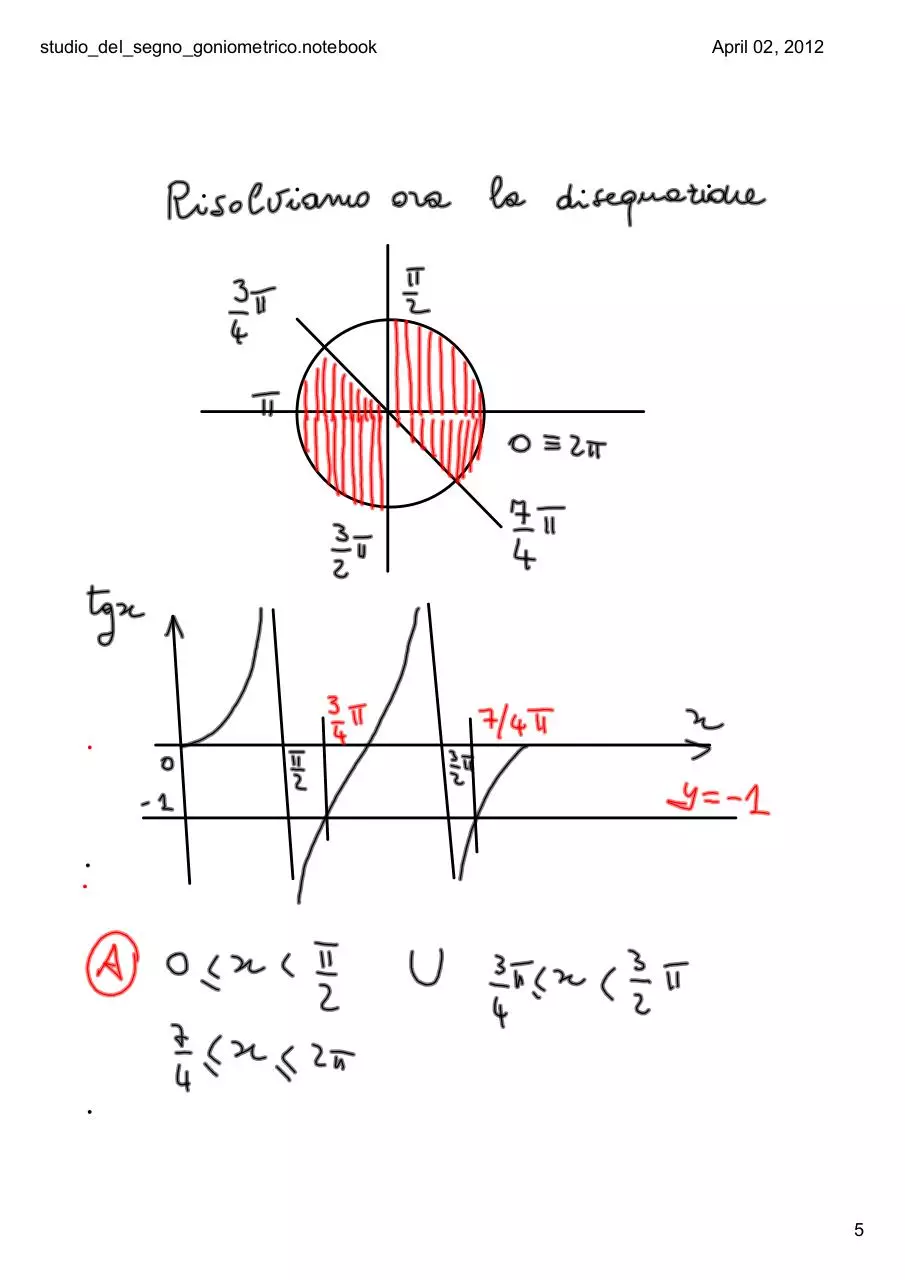 studio_del_segno_goniometrico.notebook April 02, 2012
Risolviamo ora la disequazione
3/4 π
π/2
π
0 ≡ 2π
3/2 π
7/4 π
tgx
3/4 π
7/4 π
x
0
π/2
3/2 π
-1
y=-1
A 0 ≤ x < π/2 U 3/4 π ≤ x < 3/2 π
7/4 ≤ x ≤ 2π
5